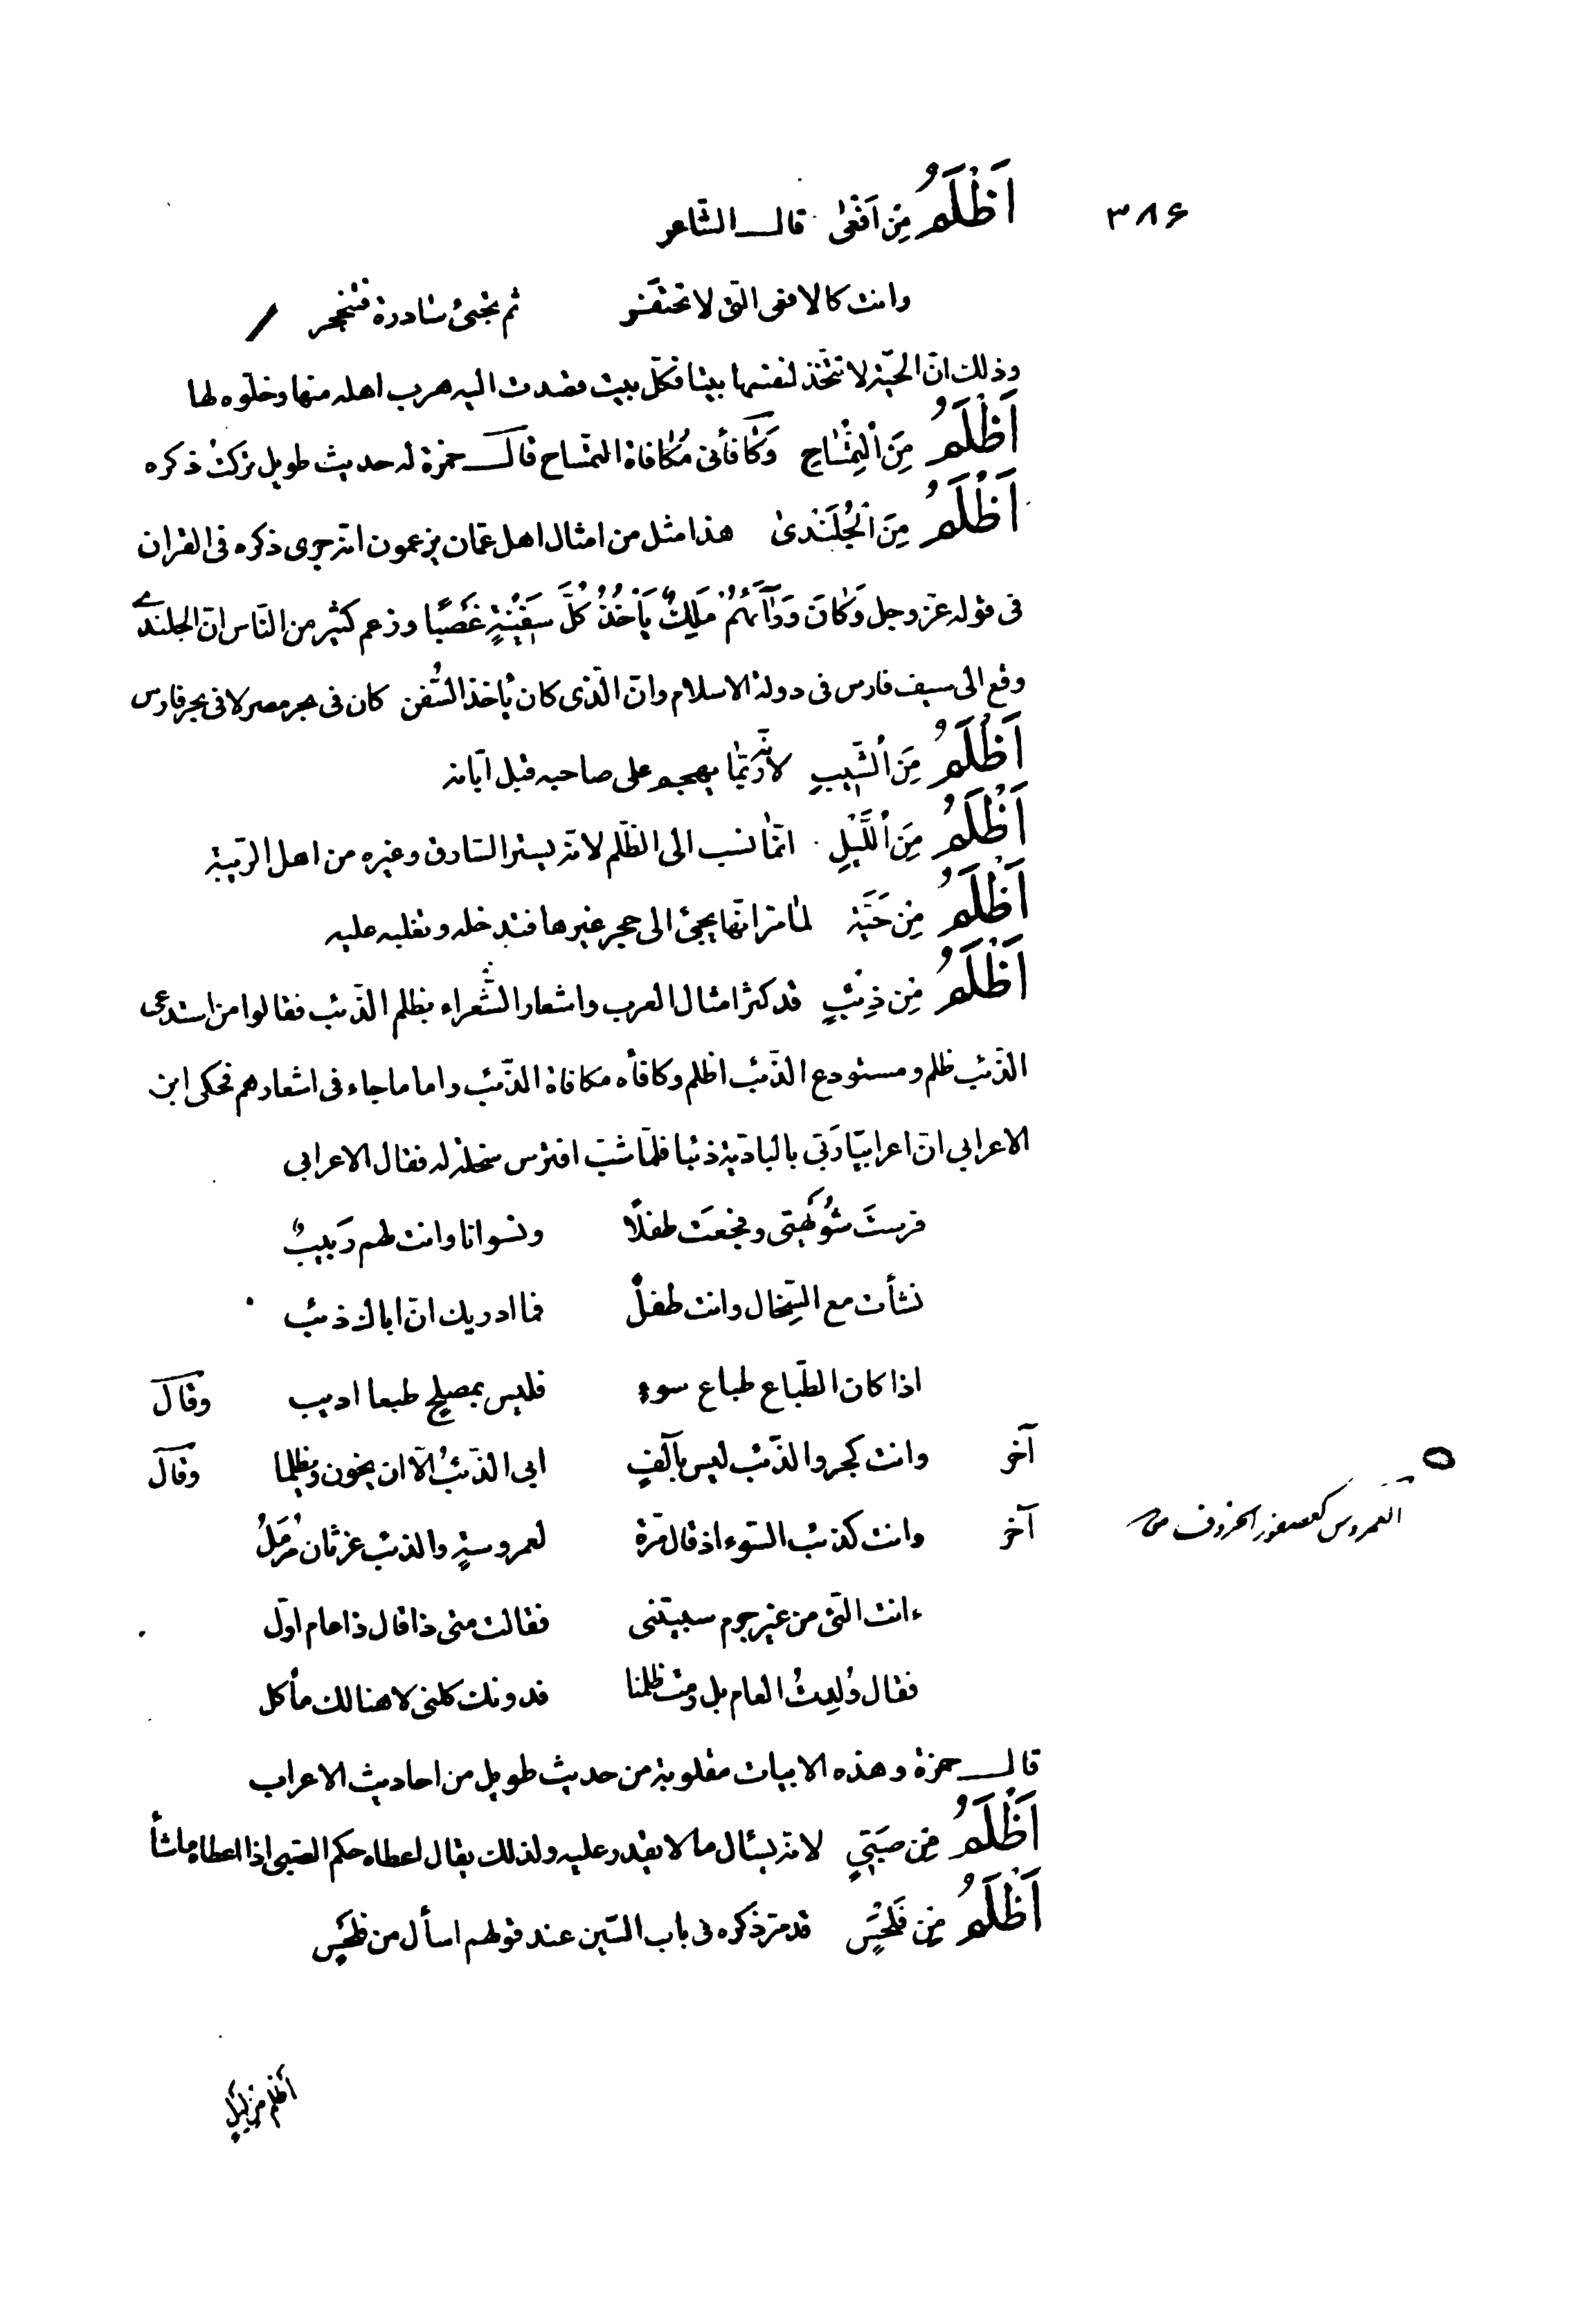 ٣٨۶
اَظْلَمُ مِنْ اَفْعٰى قال الشّاعر
وانت كالافعى الّتى لا تحتفر ثم تجىئ سادرة فتنجحر
وذلك انّ الحيّة لا تتّخذ لنفسها بيتا فكلّ بيت قصدت اليه هرب اهله منها وخلّوه لها
اَظْلَمُ مِنَ اْلتِمْسٰاحِ وَكٰافأنى مُكٰافاة التمّساح قال حمزة له حديث طويل تركتُ ذكره
اَظْلَمُ مِنَ الْجُلَنْدىٰ هذا مثل من امثال اهل عمّان يزعمون انّه جرى ذكره فى القران
فى قوله عزّ وجل وَكٰانَ وَرٰآءَهُمْ مَلِكٌ يَأْخُذُ كُلَّ سَفٖينَةٍ غَصْبًا وزعم كثير من النّاس انّ الجلندے
وقع الى سيف فارس فى دولة الاسلام وانّ الّذى كان يأخذ السُّفن كان فى بحر مصر لا فى بحر فارس
اَظْلَمُ مِنَ اْلشَّيْبِ لانّه ربّمٰا يهجم على صاحبه قبل ايّانه
اَظْلَمُ مِنَ اْللَّيْلِ انّمٰا نسب الى الظّلم لانّه يستر السّارق وغيره من اهل الرّيبة
اَظْلَمُ مِنْ حَيَّةٍ لمٰا مرّ انّها يجئ الى حجر غيرها فتدخله وتغلبه عليه
اَظْلَمُ مِنْ ذِئبٍ قد كثر امثال العرب واشعار الشُّعراء بظلم الذّئب فقالوا من استدعى
الذّئب ظلم ومستودع الذّئب اظلم وكافأه مكافاة الذّئب واما ما جاء فى اشعارهم فحكى ابن
الاعرابي انّ اعرابيّا رَبّى بالبادية ذئبا فلمّا شبّ افترس سخلة له فقال الاعرابي
فرستَ شُوَيْهتى وفجعَت طفلًا ونسوانا وانت لهم رَبيبٌ
نشأت مع السّخال وانت طفلٌ فما ادريك انّ اباك ذئب
اذا كان الطّباع طباع سوءٍ فليس بمصلح طبعا اديب وقال
آخر وانت كجرو الذّئب ليس بآلفٍ ابى الذّئبُ الّا ان يخون ويظلما وقال
آخر وانت كذئب السّوء اذ قال مرّة لعمروسةٍ والذئب غرثان مُرْمَلُ
العمروس كعصفور الخروف
ءانت الّتى من غير جرم سببتنى فقالت متى ذا قال ذا عام اوّل
فقال وُلِدتُ العام بل رمت ظلمنا فدونك كلنى لا هنا لك مأكل
قال حمزة وهذه الابيات مقلوبة من حديث طويل من احاديث الاعراب
اَظْلَمُ مِنْ صَبّيٍ لانّه يسئال ما لا يقدر عليه ولذلك يقال اعطاه حكم الصّبى اذا اعطاه ما شأ
اَظْلَمُ مِنْ فَلْحَسٍ قد مرّ ذكره فى باب السّين عند قولهم اسأل من فلحَس
اَظلم من لَيْلٍ